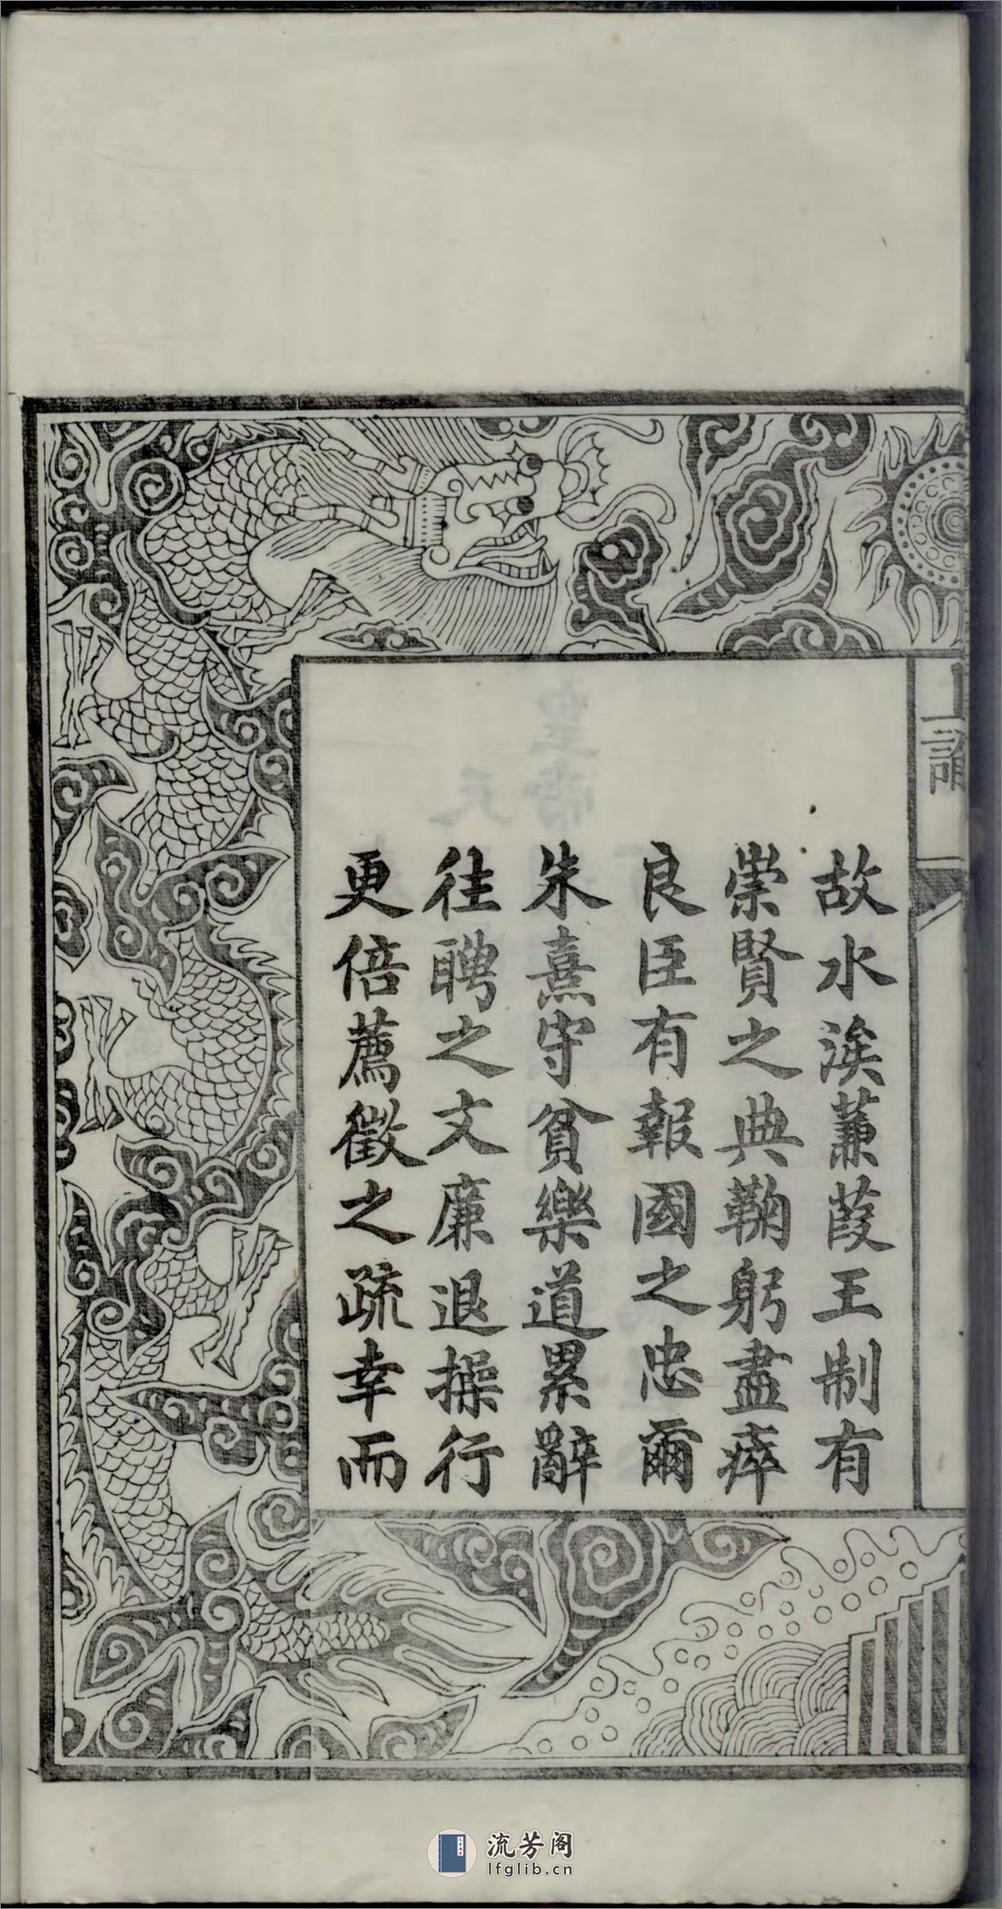 上諭
一
故水涘蒹葭王制有
崇賢之典鞠躬盡瘁
良臣有報國之忠爾
朱熹守貧樂道累辭
徃聘之文廉退操行
更倍薦徵之疏幸而
流芳阁
lfglib.cn